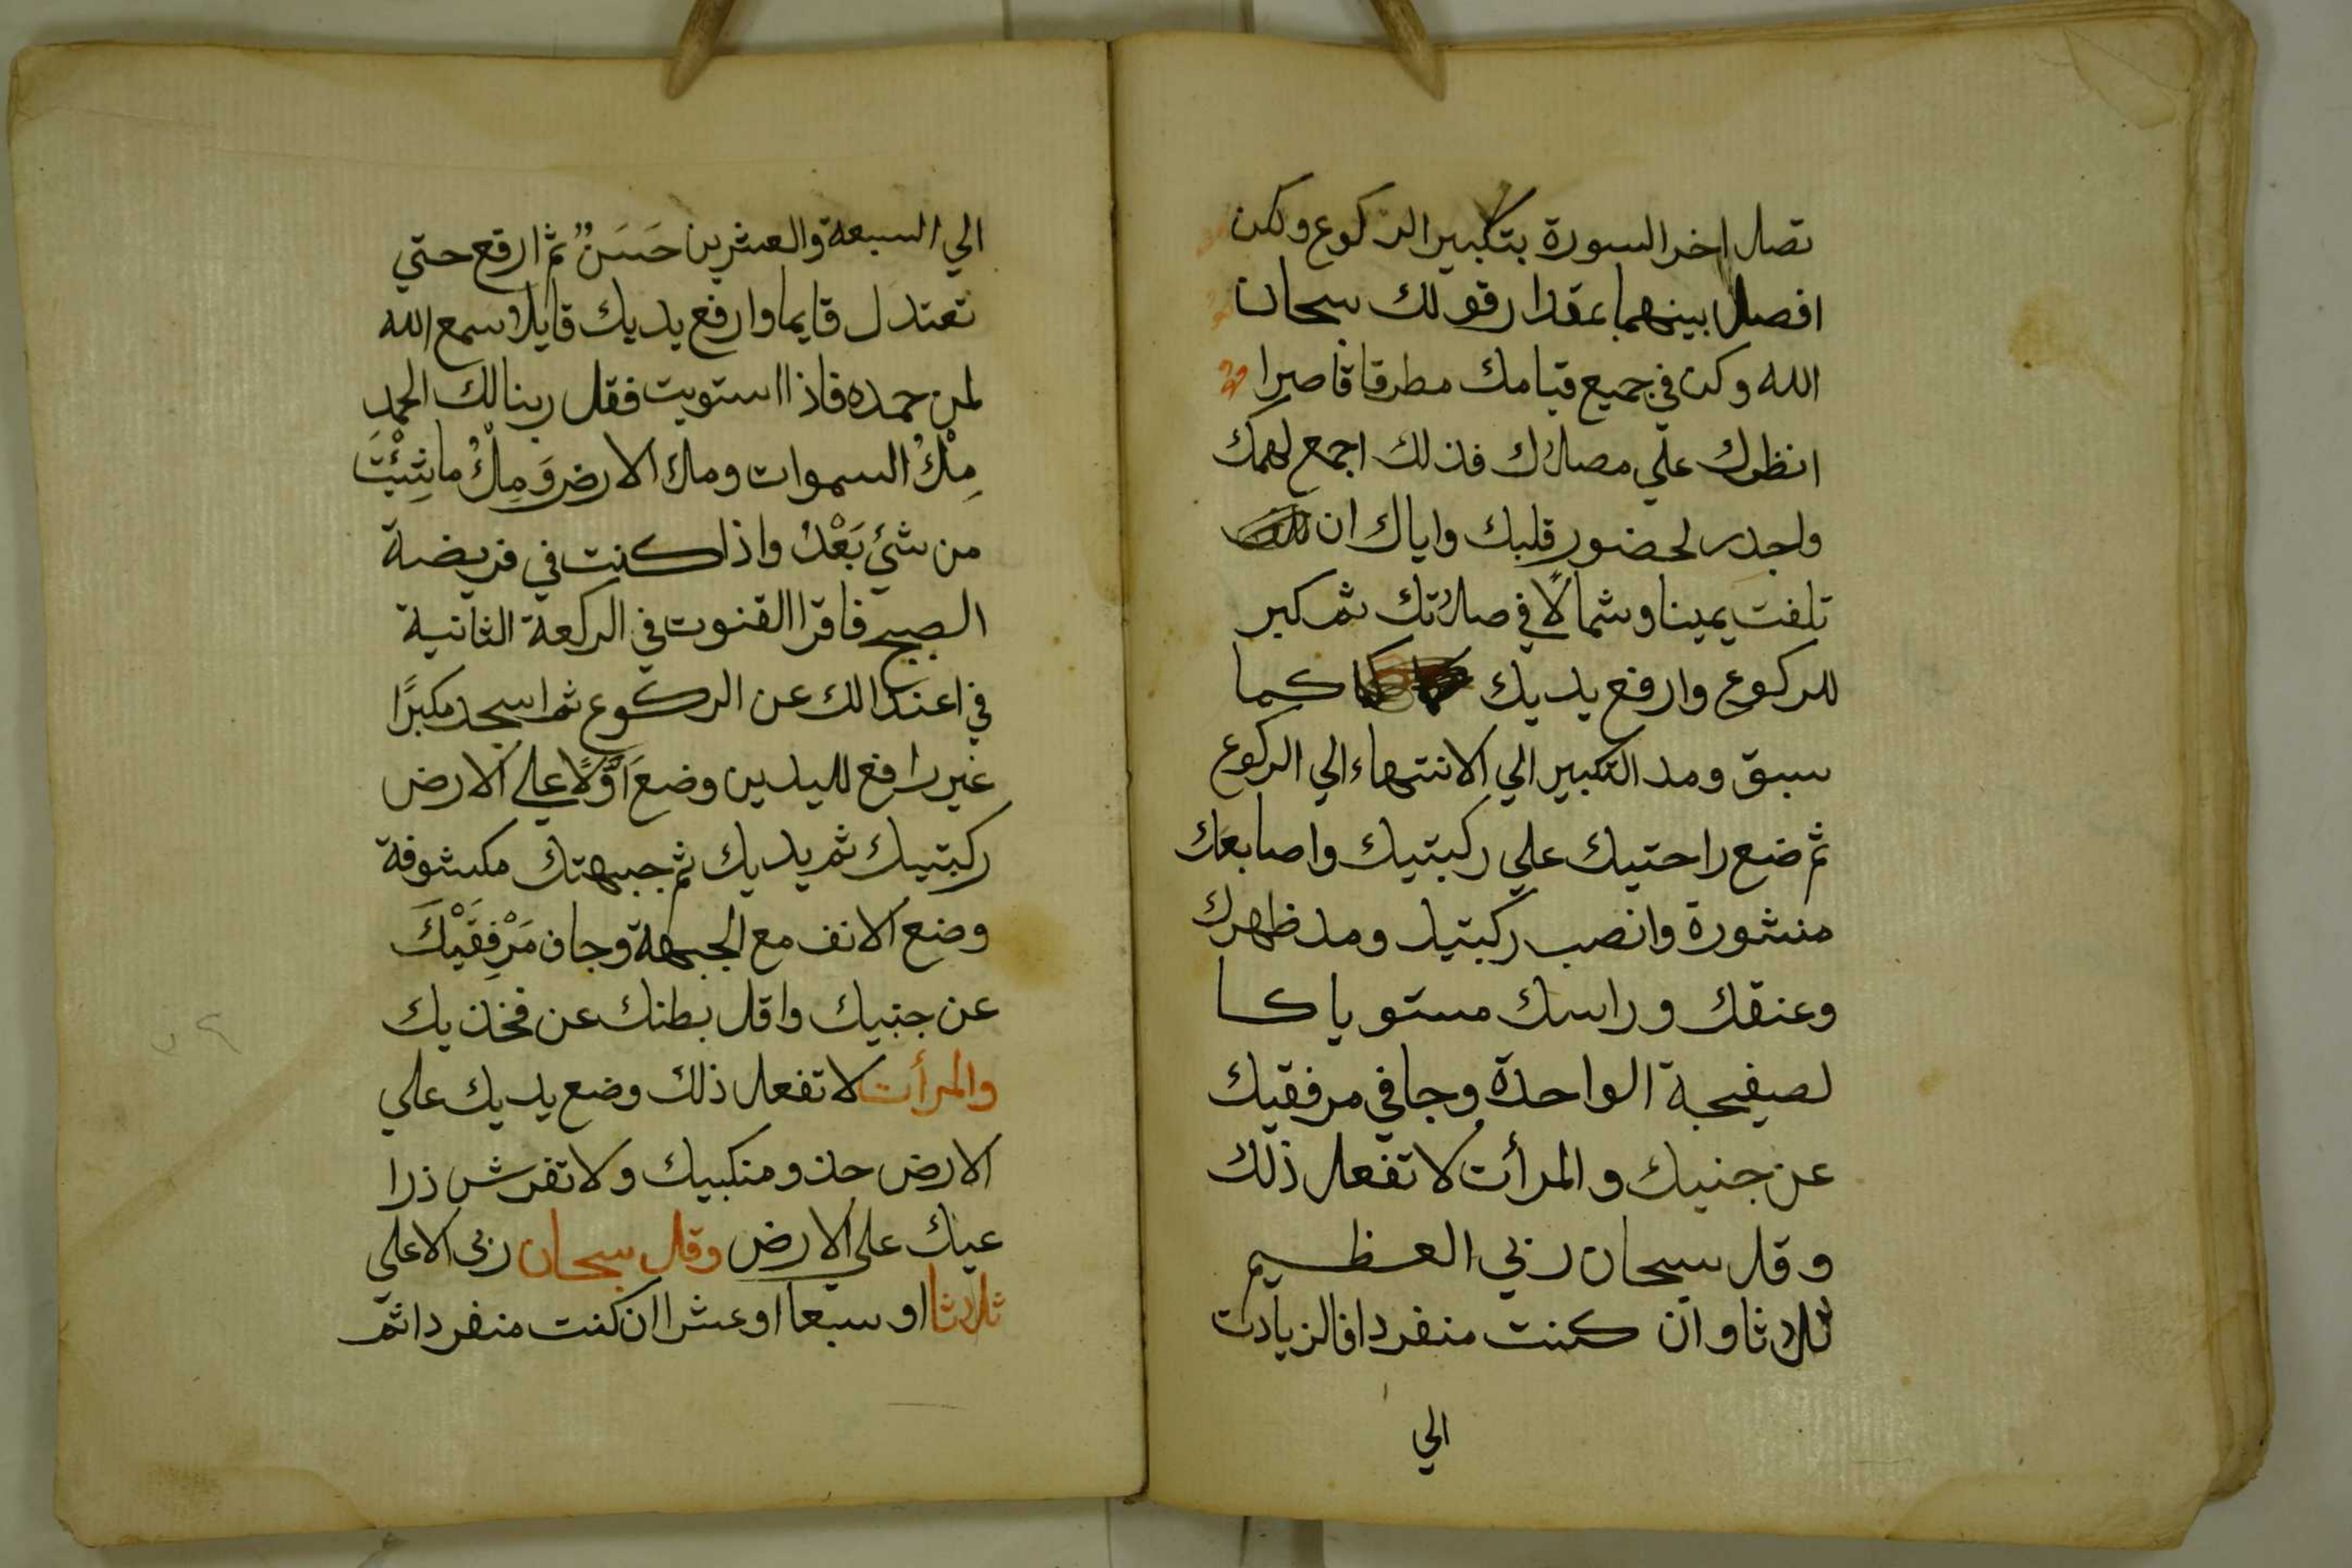 تصل اخر السورة بتكبير الركوع ولكن
افصل بينهما بمقدار قولك سبحان
الله وكن في جميع قيامك مطرقا قاصرا
انظرك علي مصلاك فذلك اجمع لهمك
واجدر لحضور قلبك واياك ان
تلفت يمينا وشمالًا في صلاتك ثم كبر
للركوع وارفع يديك كما
سبق ومد التكبير الي الانتهاء الي الركوع
ثم ضع راحتيك علي ركبتيك واصابعك
منشورة وانصب ركبتيك ومد ظهرك
وعنقك وراسك مستويا كا
لصفيحة الواحدة وجافي مرفقيك
عن جنبيك والمرأت لا تفعل ذلك
وقل سبحان ربي العظيم
ثلاثا وان كنت منفردا فالزيادت
الي
الي السبعة والعشرين حَسَنٌ ثم ارفع حتي
تعتدل قايما وارفع يديك قايلا سمع الله
لمن حمده فاذا استويت فقل ربنا لك الحمد
مِلْأُ السموات وملأ الارض وَمِلْأُ ما شِئْتَ
من شئ بَعْدُ واذا كنت في فريضة
الصبح فاقرا القنوت في الركعة الثانية
في اعتدالك عن الركوع ثم اسجد مكبرًا
غير رافع لليدين وضع اَوَّلًا علي الارض
ركبتيك ثم يديك ثم جبهتك مكشوفة
وضع الانف مع الجبهة وجاف مَرْفِقَيْكَ
عن جنبيك واقل بطنك عن فخذيك
والمرأت لا تفعل ذلك وضع يديك علي
الارض حذو منكبيك ولا تفرش ذرا
عيك علي الارض وقل سبحان ربي الاعلي
ثلاثا او سبعا او عشرا ان كنت منفردا ثم